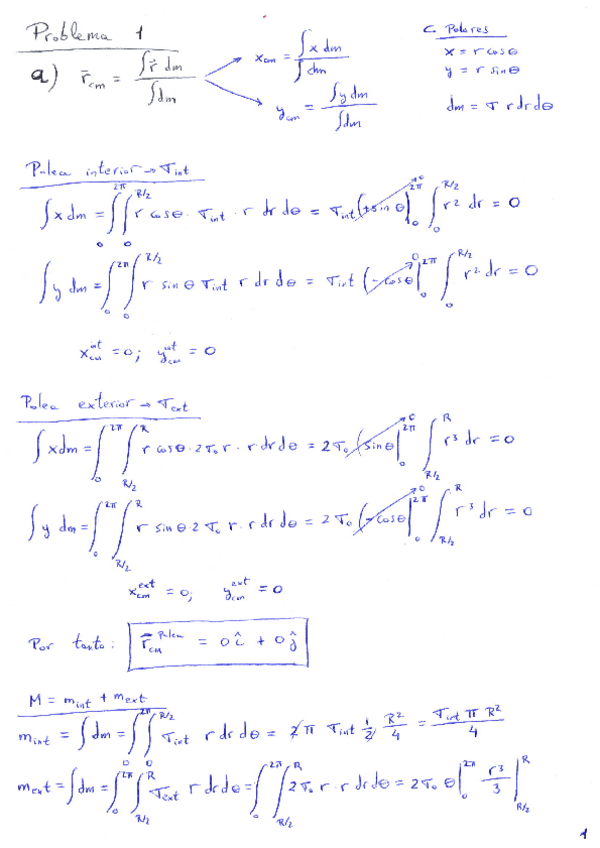 Problema 1
C. Polares
a) r⃗_cm = ∫r⃗ dm / ∫dm
x_cm = ∫x dm / ∫dm
x = r cosθ
y = r sinθ
y_cm = ∫y dm / ∫dm
dm = σ r dr dθ
Polea interior → σ_int
∫x dm = ∫₀^2π ∫₀^R/2 r cosθ · σ_int · r dr dθ = σ_int (+sinθ|₀^2π → 0 ∫₀^R/2 r² dr = 0
∫y dm = ∫₀^2π ∫₀^R/2 r sinθ σ_int r dr dθ = σ_int (-cosθ|₀^2π → 0 ∫₀^R/2 r² dr = 0
x_cm^int = 0; y_cm^int = 0
Polea exterior → σ_ext
∫x dm = ∫₀^2π ∫_R/2^R r cosθ · 2σ₀ r · r dr dθ = 2σ₀ (sinθ|₀^2π → 0 ∫_R/2^R r³ dr = 0
∫y dm = ∫₀^2π ∫_R/2^R r sinθ · 2σ₀ r · r dr dθ = 2σ₀ (-cosθ|₀^2π → 0 ∫_R/2^R r³ dr = 0
x_cm^ext = 0; y_cm^ext = 0
Por tanto: r⃗_cm^Polea = 0 î + 0 ĵ
M = m_int + m_ext
m_int = ∫dm = ∫₀^2π ∫₀^R/2 σ_int r dr dθ = 2π σ_int 1/2 R²/4 = σ_int π R² / 4
m_ext = ∫dm = ∫₀^2π ∫_R/2^R σ_ext r dr dθ = ∫₀^2π ∫_R/2^R 2σ₀ r · r dr dθ = 2σ₀ θ|₀^2π r³/3 |_R/2^R
1